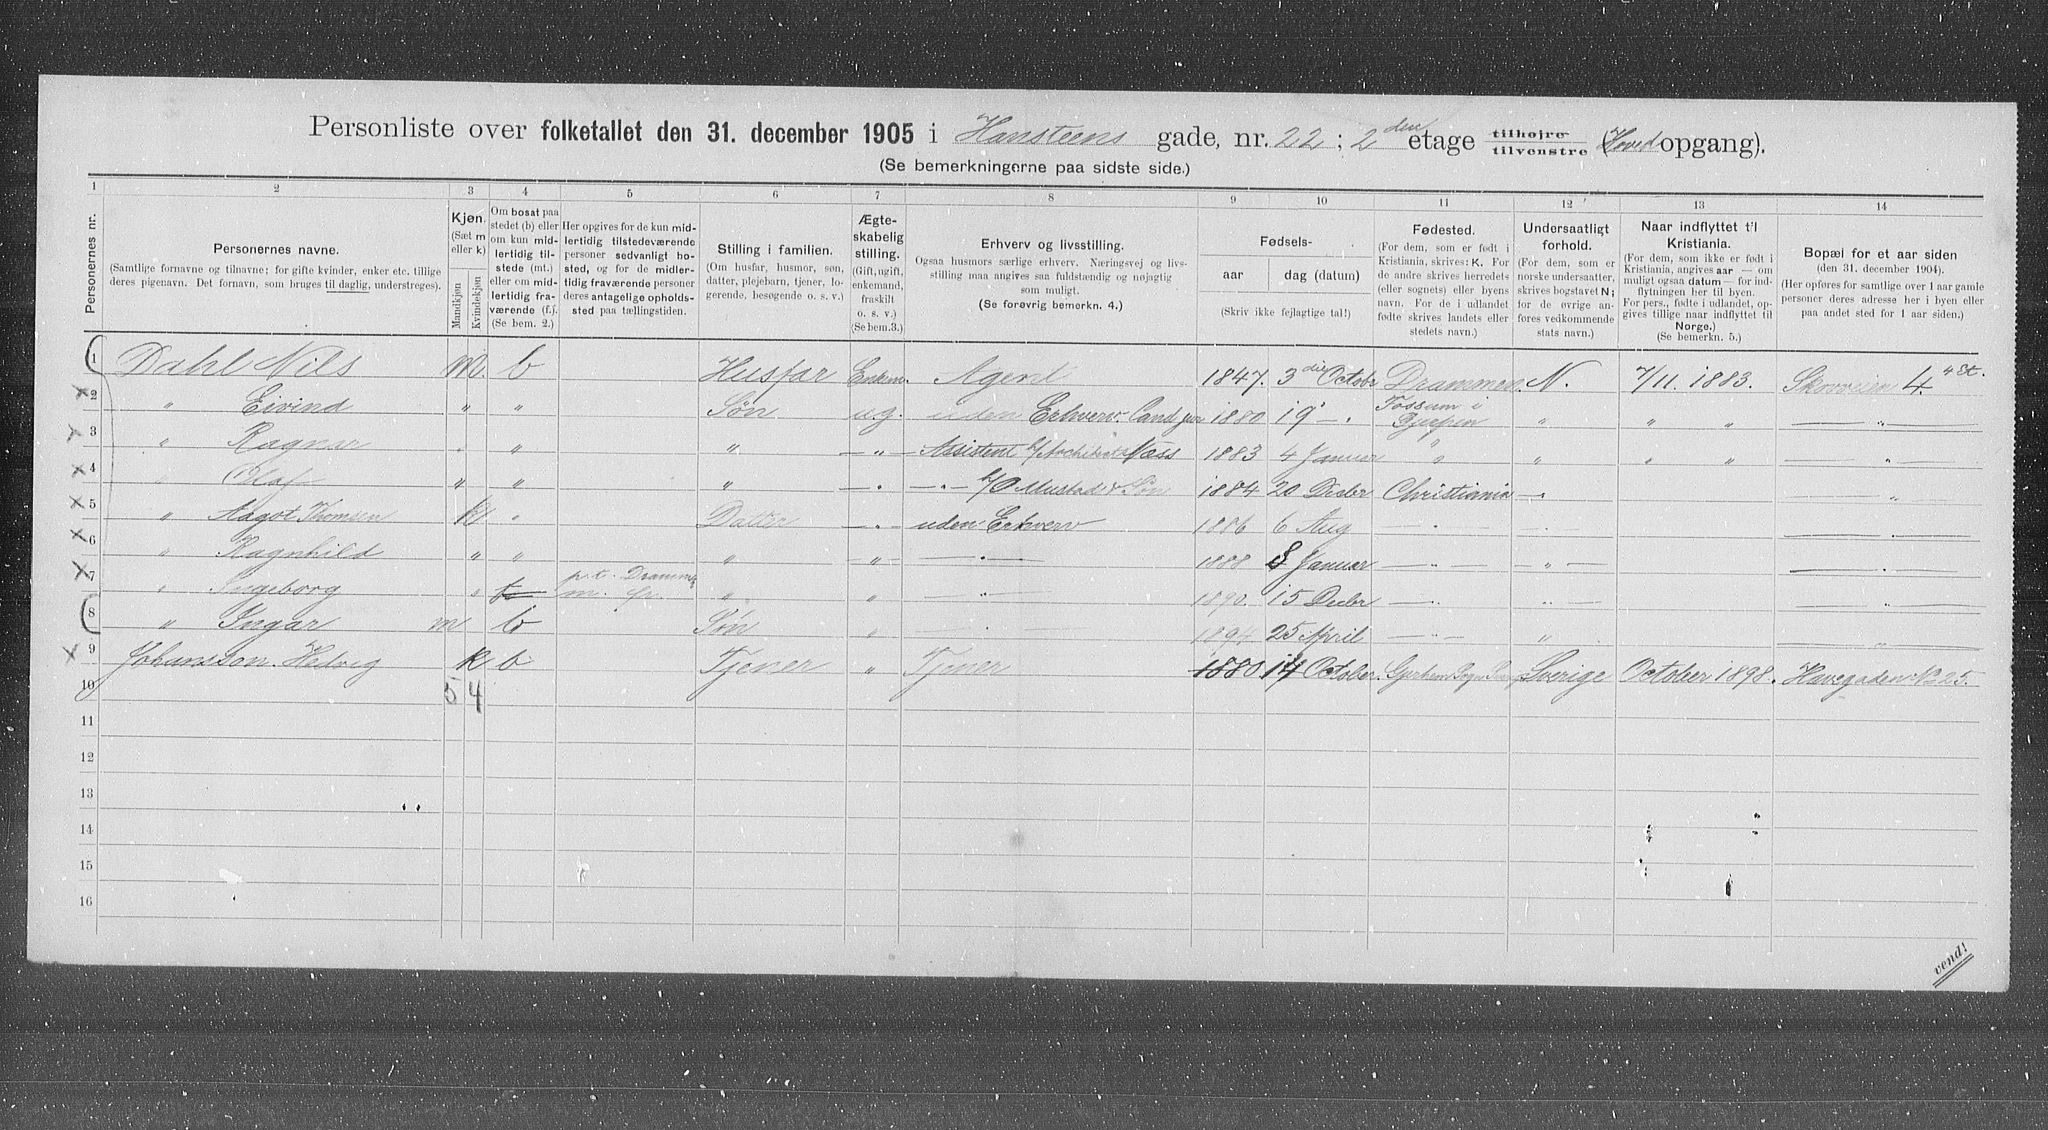 Personliste over folketallet den 31. december 1905 i Hansteens gade, nr. 22; 2 den etage tilhøjre tilvenstre (Hoved opgang).
(Se bemerkningerne paa sidste side.)
1 2 3 4 5 6 7 8 9 10 11 12 13 14
Personernes nr.
Personernes navne.
(Samtlige fornavne og tilnavne; for gifte kvinder, enker etc. tillige deres pigenavn. Det fornavn, som bruges til daglig, understreges).
Kjøn. (Sæt m eller k) Mandkjøn Kvindekjøn
Om bosat paa stedet (b) eller om kun midlertidig tilstede (mt.) eller om midlertidig fraværende (f.). (Se bem. 2.)
Her opgives for de kun midlertidig tilstedeværende personer sedvanligt bosted, og for de midlertidig fraværende personer deres antagelige opholdssted paa tællingstiden.
Stilling i familien.
(Om husfar, husmor, søn, datter, plejebarn, tjener, logerende, besøgende o. s. v.)
Ægteskabelig stilling. (Gift, ugift, enkemand, fraskilt o. s. v.) (Se bem.3.)
Erhverv og livsstilling.
Ogsaa husmors særlige erhverv. Næringsvej og livsstilling maa angives saa fuldstændig og nøjagtig som muligt.
(Se forøvrig bemerkn. 4.)
Fødsels-
aar dag (datum)
(Skriv ikke fejlagtige tal!)
Fødested.
(For dem, som er født i Kristiania, skrives: K. For de andre skrives herredets (eller sognets) eller byens navn. For de i udlandet fødte skrives landets eller stedets navn.)
Undersaatligt forhold.
(For dem, som er norske undersaatter, skrives bogstavet N; for de øvrige anføres vedkommende stats navn.)
Naar indflyttet til Kristiania.
(For dem, som ikke er født i Kristiania, angives aar — om muligt ogsaa datum — for indflytningen her til byen. For pers., fødte i udlandet, opgives tillige naar indflyttet til Norge.) (Se bemerkn. 5.)
Bopæl for et aar siden
(den 31. december 1904).
(Her opføres for samtlige over 1 aar gamle personer deres adresse her i byen eller paa andet sted for 1 aar siden.)
1 Dahl Nils m. b Husfar Enkem. Agent 1847. 3 die Octobr Drammen. N. 7/11. 1883. Skovveien 4. " St.
2 " Eivind " " Søn ug. uden Erhverv. Cand jur 1880 19 — . Fossum i Gjerpen " " " — " —
3 " Ragnar " " " — " — Assistent h/ Architekt Næss 1883 4 Januar " " " " — " —
4 " Olaf " " " — . — — " — h/ O Mustad & Søn 1884 20 Decbr Christiania — . "
5 " Aagot Thomsen k " Datter — . — uden Erhverv 1886 6 Aug — . — — " — — " —
6 " Ragnhild " " " " — . — 1888 8 Januar — . — — " — — . —
7 " Ingeborg " b p.t. Drammen m. fr. " " — " — 1890. 15 Decbr — . — " — — " —
8 " Ingar m b Søn " — . — 1894 25 April — . — " "
9 Johansson. Hedvig k b Tjener " Tjener 1880 14 October. Sverige October 1898. Havegaden No 25.
10 5 4
11
12
13
14
15
16
vend!